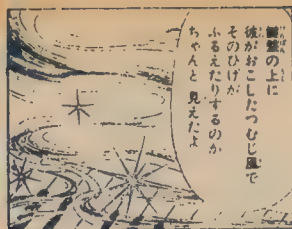 鍵盤の上に
彼がおこしたつむじ風で
そのひげが
ふるえたりするのか
ちゃんと 見えたよ